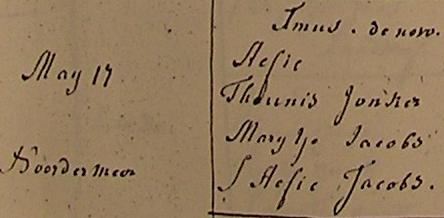 May 17
Noordermeer
Imus. de nov.
Aefie
Thounis Jonker
Marytje Jacobs
S Aefie Jacobs.